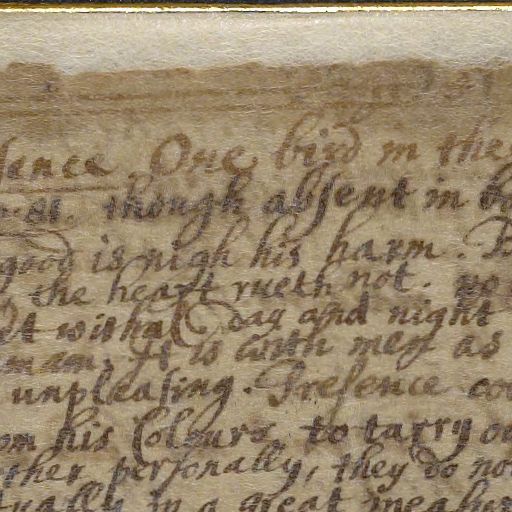 sence. One bird in the
81. though absent in bo
good is nigh his harm.
the heart rueth not.
withal Day and night
mam. It is with men as
unpleasing. Presence
om his Colours, to tarry
ther personally, they do no
tually in a great measur